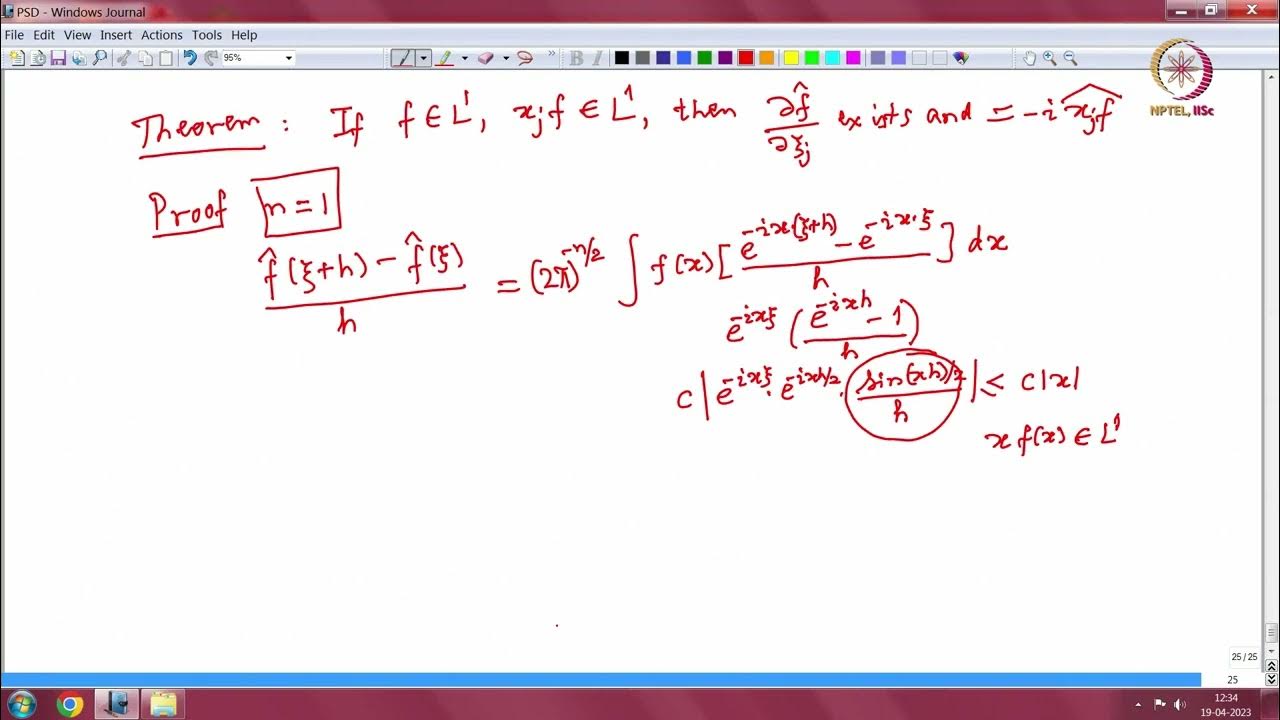 PSD - Windows Journal
File Edit View Insert Actions Tools Help
95%
NPTEL, IISc
Theorem : If f ∈ L¹, x_j f ∈ L¹, then ∂f̂/∂ξ_j exists and = -i \widehat{x_j f}
Proof n = 1
(f̂(ξ+h) - f̂(ξ))/h = (2π)^{-n/2} ∫ f(x) [ (e^{-ix·(ξ+h)} - e^{-ix·ξ})/h ] dx
e^{-ixξ} ( (e^{-ixh} - 1)/h )
c | e^{-ixξ} · e^{-ixh/2} · (sin(xh)/2)/h | ≤ c|x|
x f(x) ∈ L¹
25 / 25
25
12:34
19-04-2023